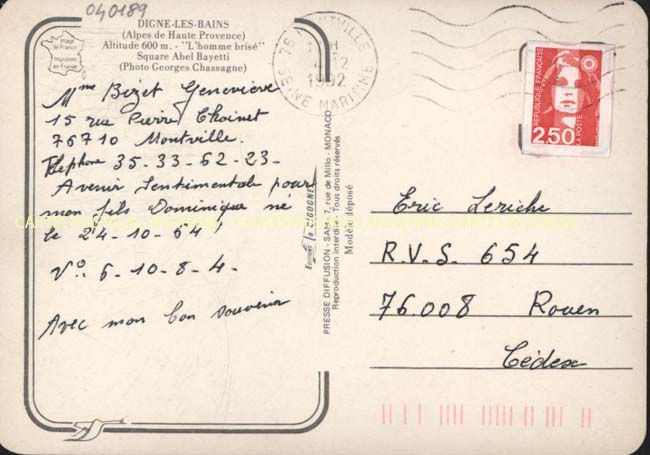 040189
DIGNE-LES-BAINS
(Alpes de Haute Provence)
Altitude 600 m. - "L'homme brisé"
Square Abel Bayetti
(Photo Georges Chassagne)
Image de France
Imprimées en France
Mme Bizet Geneviève
15 rue Pierre Choinet
76710 Montville.
Téléphone 35-33-62-23-
Avenir Sentimentale pour
mon fils Dominique né
le 24-10-64?
N° 6-10-8-4-
Avec mon bon souvenir
Editions "la CIGOGNE"
PRESSE DIFFUSION - SAM - 7, rue de Millo - MONACO
Reproduction interdite - Tous droits réservés
Modèle déposé
76 MONTVILLE
H
12
1992
SEINE MARITIME
REPUBLIQUE FRANÇAISE
2,50
LA POSTE
Eric Leriche
R.V.S. 654
76.008 Rouen
Cédex